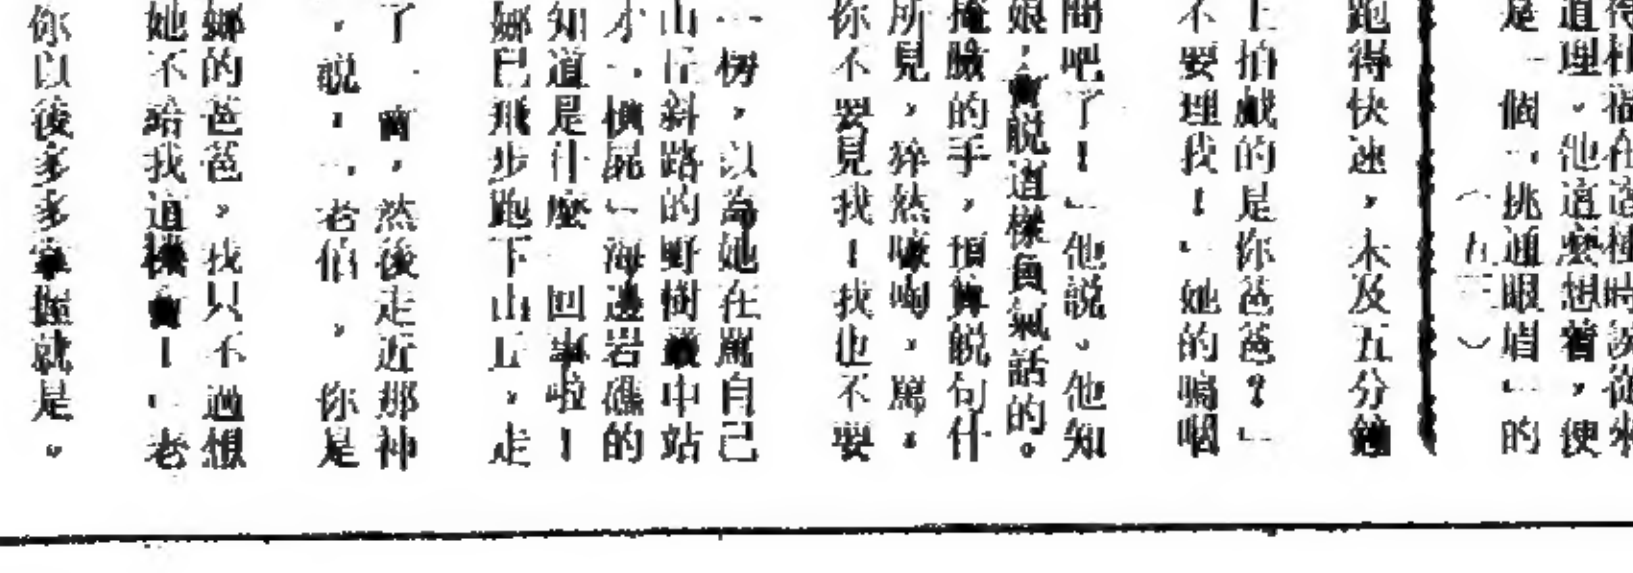 得杜福在這種時說從來
道理。他這麽想着，便
是一個「挑通眼眉」的
（五三）
跑得快速，未及五分鐘
上拍戲的是你爸爸？」
不要理我！」她的嗚咽
問吧了！」他說。他知
娘，會說這樣負氣話的。
掩臉的手，預算說句什
所見，猝然嚎啕，罵。
你不要見我！我也不要
一楞，以為她在罵自己
山丘斜路的野樹叢中站
才「橫屍」海邊岩礁的
知道是什麼 回事啦！
娜已飛步跑下山丘，走
了一會，然後走近那神
，說：「老伯，你是
娜的爸爸，我只不過想
她不給我這機會！」老
你以後多多掌握就是。